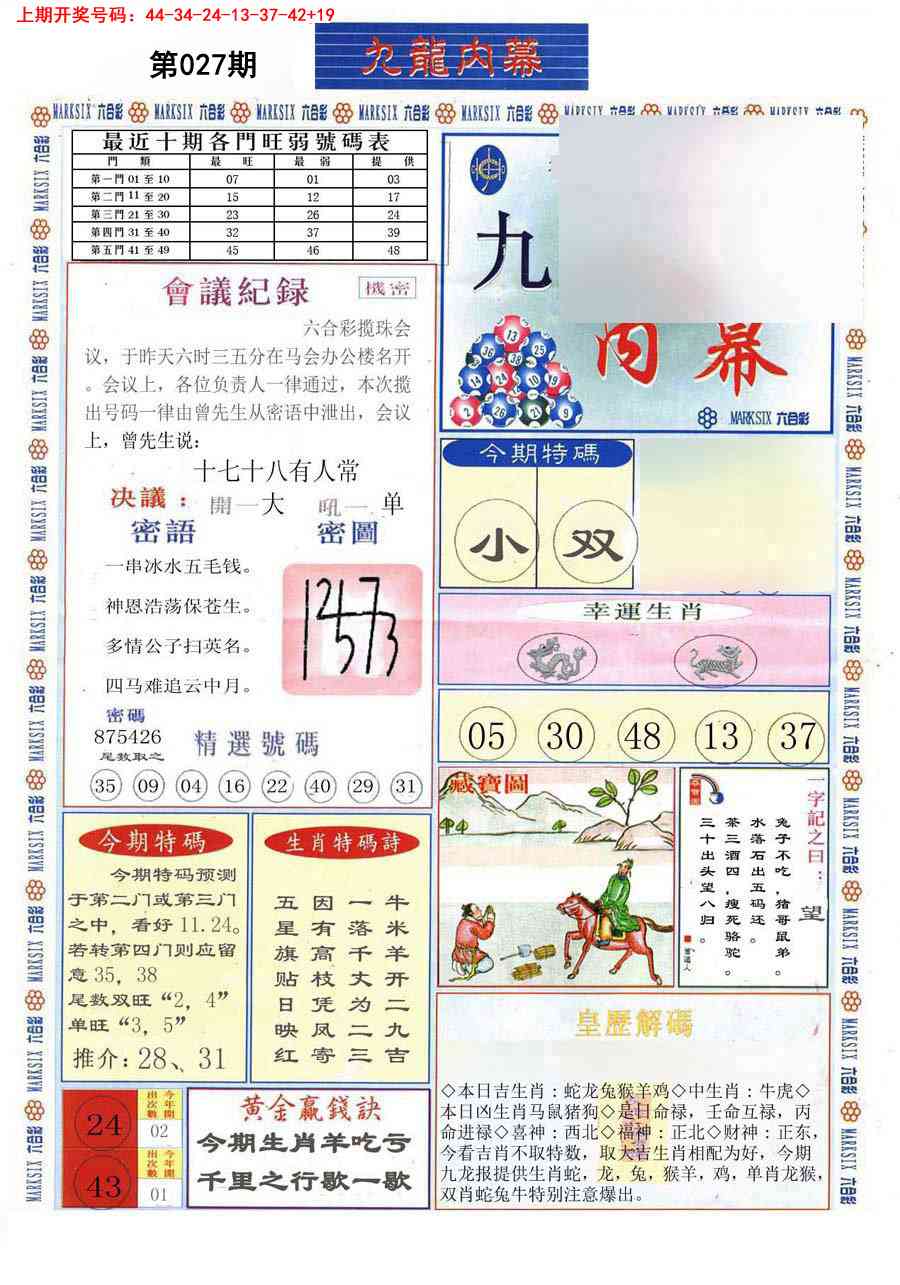 上期开奖号码：44-34-24-13-37-42+19
第027期
九龍内幕
MARKSIX 六合彩 MARKSIX 六合彩 MARKSIX 六合彩 MARKSIX 六合彩 MARKSIX 六合彩 MARKSIX 六合彩
最近十期各門旺弱號碼表
門類 最旺 最弱 提供
第一門01至10 07 01 03
第二門11至20 15 12 17
第三門21至30 23 26 24
第四門31至40 32 37 39
第五門41至49 45 46 48
會議紀録
機密
六合彩揽珠会
议，于昨天六时三五分在马会办公楼名开
。会议上，各位负责人一律通过，本次揽
出号码一律由曾先生从密语中泄出，会议
上，曾先生说：
十七十八有人常
决議：開一大 吼一单
密語 密圖
一串冰水五毛钱。
神恩浩荡保苍生。
多情公子扫英名。
四马难追云中月。
密碼
875426
尾数取之
精選號碼
35 09 04 16 22 40 29 31
九
内幕
13
36 38 25
14 24 10 19
2 26 21 9
MARKSIX 六合彩
今期特碼
小 双
幸運生肖
05 30 48 13 37
今期特碼
今期特码预测
于第二门或第三门
之中，看好11.24。
若转第四门则应留
意35，38
尾数双旺“2，4”
单旺“3，5”
推介：28、31
生肖特碼詩
牛米羊开二九吉
一落千丈为二三
因有高枝凭凤寄
五星旗贴日映红
藏寶圖
一字記之曰：
望
兔子不吃，猪哥鼠弟。
水落石出五码还。
茶三酒四，瘦死骆驼。
三十出头望八归。
皇歷解碼
◇本日吉生肖：蛇龙兔猴羊鸡◇中生肖：牛虎◇
本日凶生肖马鼠猪狗◇是日命禄，壬命互禄，丙
命进禄◇喜神：西北◇福神：正北◇财神：正东，
今看吉肖不取特数，取大吉生肖相配为好，今期
九龙报提供生肖蛇，龙，兔，猴羊，鸡，单肖龙猴，
双肖蛇兔牛特别注意爆出。
24
今年開出次數
02
43
今年開出次數
01
黄金贏錢訣
今期生肖羊吃亏
千里之行歌一歌